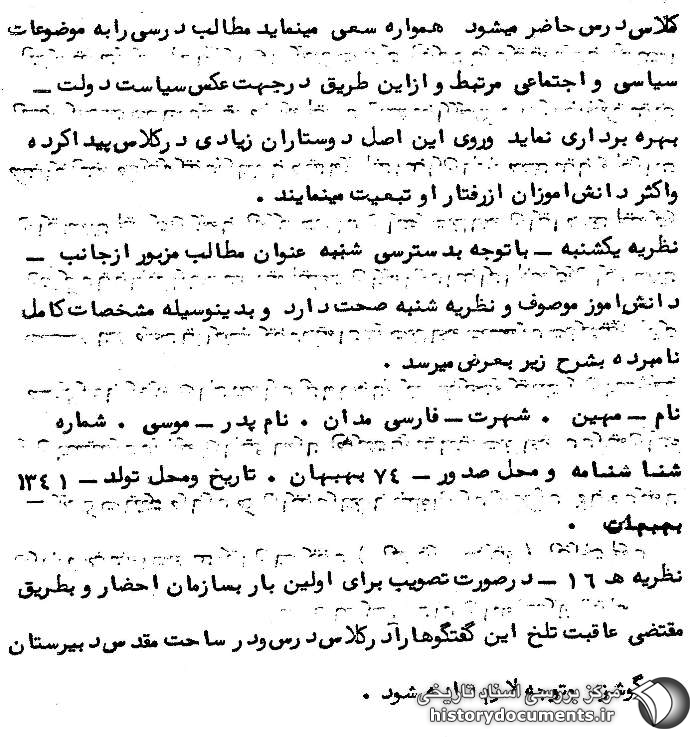 کلاس درس حاضر میشود همواره سعی مینماید مطالب درسی را به موضوعات
سیاسی و اجتماعی مرتبط و از این طریق در جهت عکس سیاست دولت ــ
بهره برداری نماید و روی این اصل دوستاران زیادی در کلاس پیدا کرده
و اکثر دانش اموزان از رفتار او تبعیت مینمایند .
نظریه یکشنبه ــ با توجه بدسترسی شنبه عنوان مطالب مزبور از جانب ــ
دانش اموز موصوف و نظریه شنبه صحت دارد و بدینوسیله مشخصات کامل
نامبرده بشرح زیر بعرض میرسد .
نام ــ مهین . شهرت ــ فارسی مدان . نام پدر ــ موسی . شماره
شنا شنامه و محل صدور ــ ۷۴ بهبهان . تاریخ ومحل تولد ــ ۱۳۴۱
بهبهان .
نظریه هـ ۱۶ ــ در صورت تصویب برای اولین بار بسازمان احضار و بطریق
مقتضی عاقبت تلخ این گفتگوها را در کلاس درس و در ساحت مقدس دبیرستان
شود .
مرکز بررسی اسناد تاریخی
historydocuments.ir